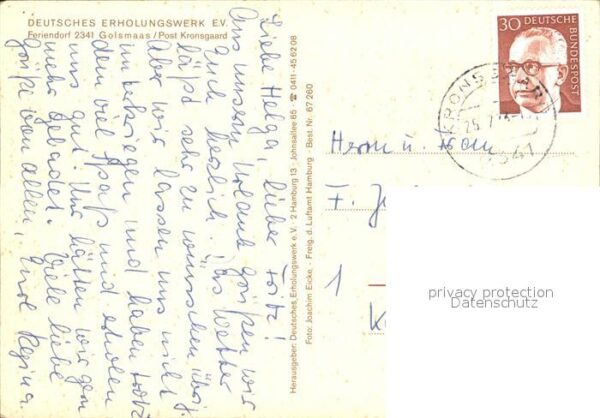 DEUTSCHES ERHOLUNGSWERK E.V.
Feriendorf 2341 Golsmaas/Post Kronsgaard
Liebe Helga, lieber Fritz!
Aus unserem Urlaub grüßen wir
Euch herzlich. Das Wetter
läßt sehr zu wünschen übrig
Aber wir lassen uns nicht
unterkriegen und haben trotz
dem viel Spaß und erholen
uns gut. Nur hätten wir gern
mehr gebadet. Viele liebe
Grüße von allen, Eure Regina
Herausgeber: Deutsches Erholungswerk e.V. · 2 Hamburg 13 · Johnsallee 65 ☎ 0411-45 62 08
Foto: Joachim Eicke, - Freig. d. Luftamt Hamburg - Best. Nr. 67 260
30 DEUTSCHE
BUNDESPOST
KRONSGAARD
2341
Herrn u. Frau
F.
1
privacy protection
Datenschutz